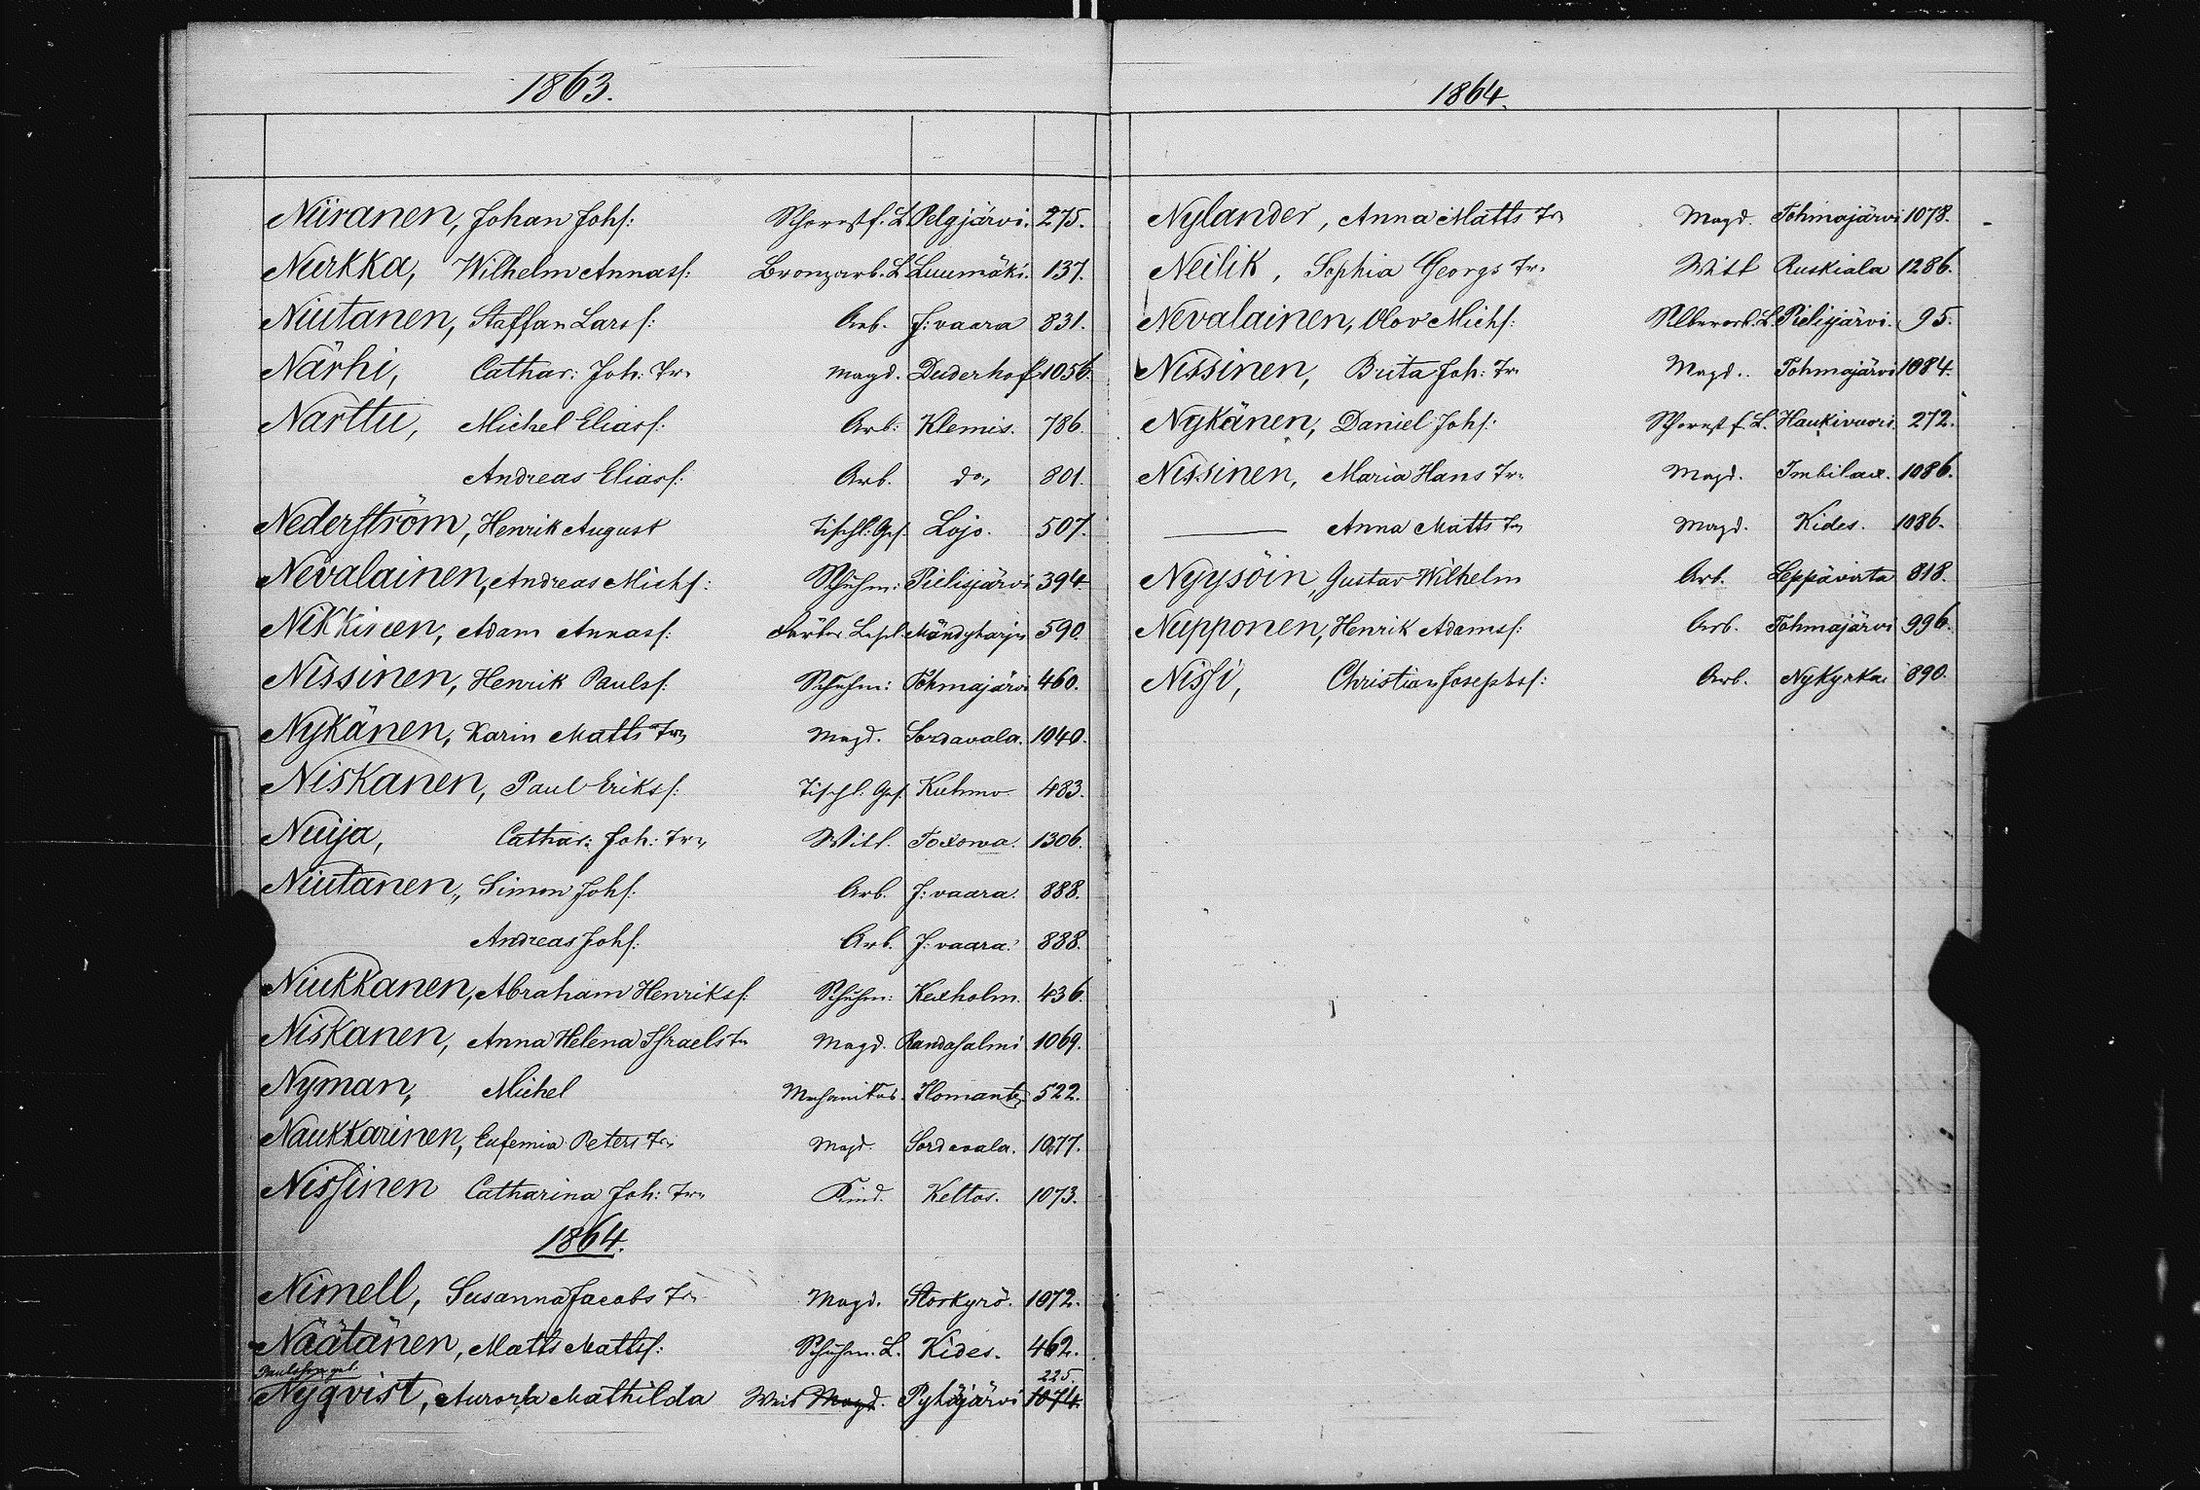 1863.
Niiranen, Johan Johs: Schornstf. L. Pelgjärvi. 275.
Nurkka, Wilhelm Annass: Bronzarb. L. Luumäki. 137.
Niutanen, Staffan Lars s: Arb. J:vaara 831.
Närhi, Cathar: Joh: Tr. Magd. Duderhof 1056.
Narttu, Michel Eliass: Arb: Klemis. 786.
Andreas Eliass: Arb. do, 801.
Nederström, Henrik August Tischl: Ges. Lojo. 507.
Nevalainen, Andreas Michs: Schuhm: Pielisjärvi 394.
Nikkinen, Adam Annass: Färber Mändyharju 590.
Nissinen, Henrik Paulss: Schuhm: Tohmajärvi 460.
Nykänen, Karin Matts Tr, Magd. Sordavala. 1040.
Niskanen, Paul Eriks s: Tischl: Ges. Kuhmo 483.
Nuija, Cathar: Joh: Tr, Toxowa. 1306.
Niutanen, Simon Johs: Arb. J:vaara. 888.
Andreas Johs: Arb. J:vaara. 888.
Niukkanen, Abraham Henrikss: Schuhm: Kexholm. 436.
Niskanen, Anna Helena Israels Tr Magd. Randasalmi 1069.
Nyman, Michel Mechanikus. Ilomants 522.
Naukkarinen, Eufemia Peters Tr, Magd. Sordavala. 1077.
Nissinen Catharina Joh: Tr, Kind. Keltos. 1073.
1864.
Nimell, Susanna Jacobs Tr. Magd. Storkyrö. 1072.
Näätänen, Matts Mattss: Schuhm. L. Kides. 462.
225.
Nyqvist, Aurora Mathilda Weib Magd. Pyhäjärvi 1074.
1864.
Nylander, Anna Matts Tr Magd. Tohmajärvi 1078.
Neilik, Sophia Georgs Tr. Ruskiala 1286.
Nevalainen, Olov Michs: Silberarb. L. Pielisjärvi. 95.
Nissinen, Brita Joh: Tr. Magd. Tohmajärvi 1084.
Nykänen, Daniel Johs: Schornst f. L. Haukivuori. 272.
Nissinen, Maria Hans Tr. Magd. Imbilax. 1086.
Anna Matts Tr Magd. Kides. 1086.
Nyysöin, Gustav Wilhelm Arb. Leppävirta 818.
Nupponen, Henrik Adamss: Arb. Tohmajärvi 996.
Nissi, Christian Josephss: Arb. Nykyrka 890.